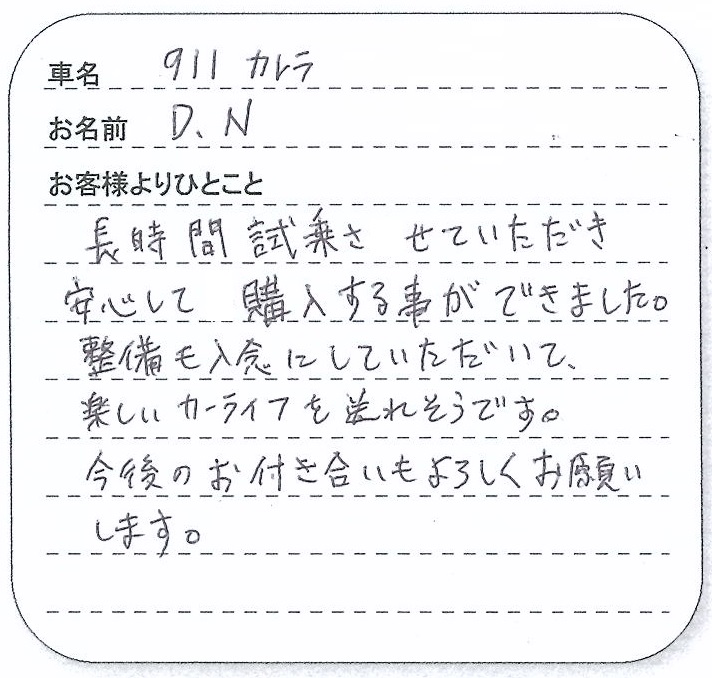 車名 911 カレラ
お名前 D.N
お客様よりひとこと
長時間試乗させていただき
安心して購入する事ができました。
整備も入念にしていただいて、
楽しいカーライフを送れそうです。
今後のお付き合いもよろしくお願い
します。